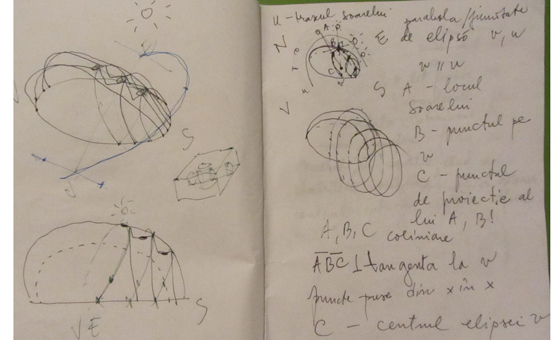 S
V E
S
u - traseul soarelui
parabola/jumătate
de elipsă v, u
Z
E
v || u
S
A - locul
soarelui
B - punctul pe
v
C - punctul
de proiecție al
lui A, B!
A, B, C coliniare
ABC ⊥ tangenta la v
puncte puse din x în x
C - centrul elipsei v